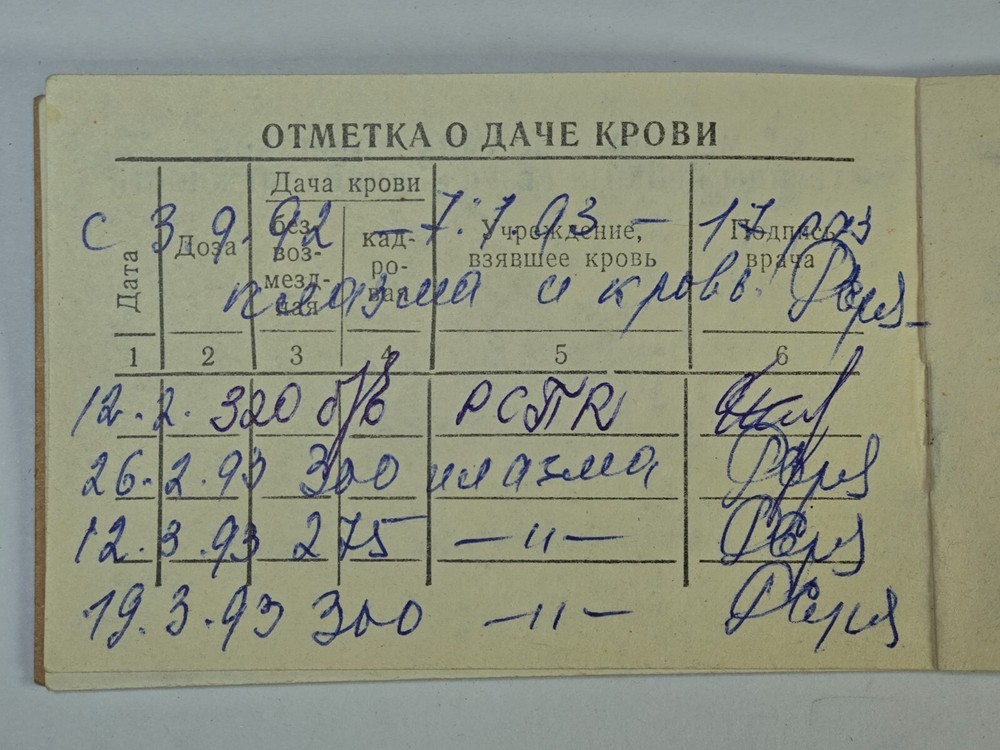 ОТМЕТКА О ДАЧЕ КРОВИ
Дата
Доза
Дача крови
без-
воз-
мезд-
ная
кад-
ро-
вая
Учреждение,
взявшее кровь
Подпись
врача
С 3.9.92 — 7.1.93 — 17
плазма и кровь
1 2 3 4 5 6
12.2. 320 б/в РСПК
26.2.93 300 плазма
12.3.93 275 —〃—
19.3.93 300 —〃—